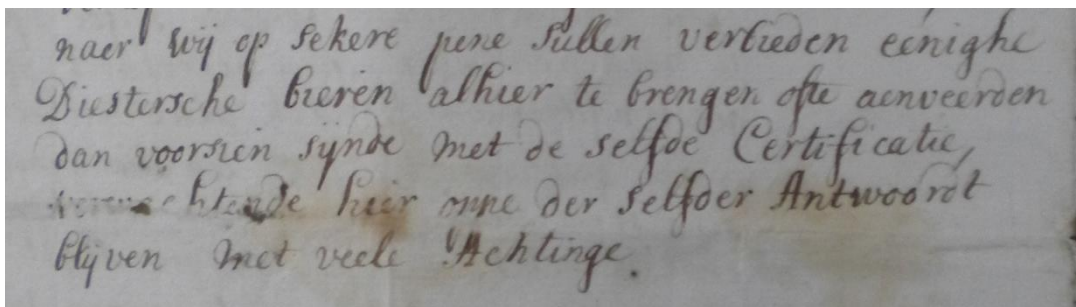 naer wij op sekere pene sullen verbieden eenighe
Diestersche bieren alhier te brengen ofte aenveerden
dan voorsien sijnde met de selfde Certificatie,
verwachtende hier oppe der selfder Antwoordt
blijven met veele Achtinge.